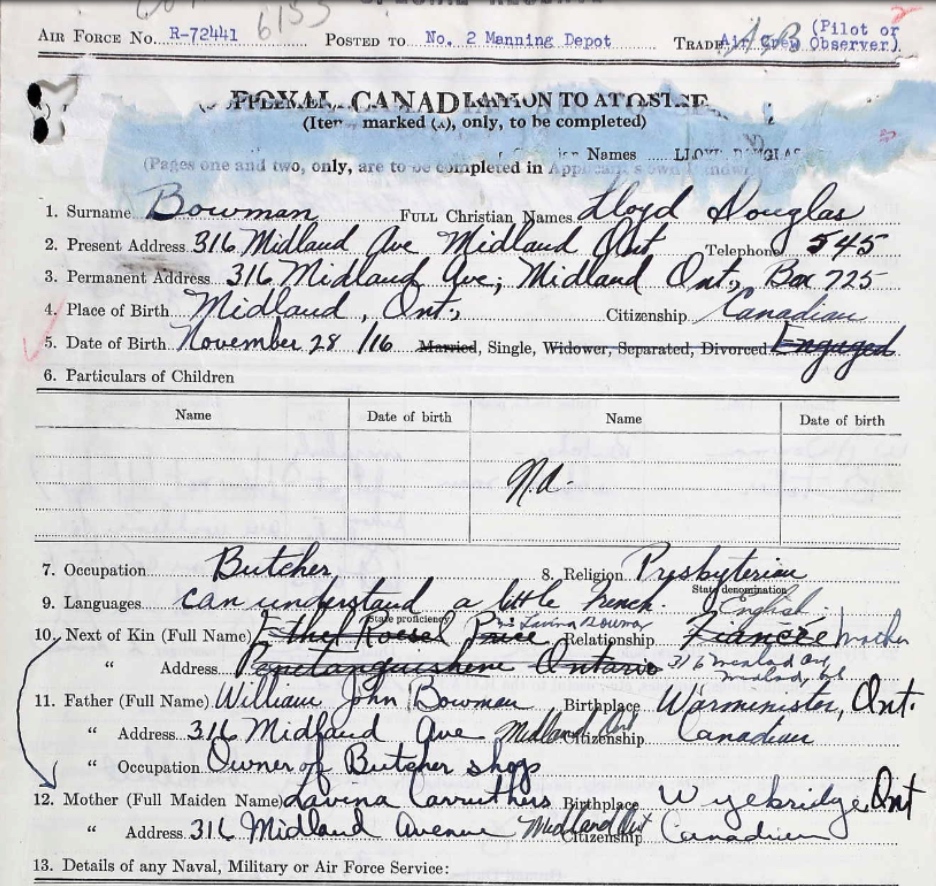 6133
AIR FORCE NO. R-72441 POSTED TO No. 2 Manning Depot TRADE Air Crew (Pilot or Observer).
(Items marked (x), only, to be completed)
Names LLOYD DOUGLAS
(Pages one and two, only, are to be completed in Applicant's own handwriting)
1. Surname Bowman FULL Christian Names Lloyd Douglas
2. Present Address 316 Midland Ave Midland Ont Telephone 545
3. Permanent Address 316 Midland Ave; Midland Ont., Box 725
4. Place of Birth Midland, Ont., Citizenship Canadian
5. Date of Birth November 28 /16 Married, Single, Widower, Separated, Divorced. Engaged
6. Particulars of Children
Name Date of birth Name Date of birth
N.a.
7. Occupation Butcher 8. Religion Presbyterian
State denomination
9. Languages can understand a little French. English
State proficiency
10. Next of Kin (Full Name) Ethel Roesel Price Lavina Bowman Relationship Fiancée Mother
" Address Penetanguishene Ontario 316 Midland Ave
11. Father (Full Name) William John Bowman Birthplace Warminister, Ont.
" Address 316 Midland Ave Midland Ont Citizenship Canadian
" Occupation Owner of Butcher shop
12. Mother (Full Maiden Name) Lavina Carruthers Birthplace Wyebridge Ont
" Address 316 Midland Avenue Midland Ont Citizenship Canadian
13. Details of any Naval, Military or Air Force Service: